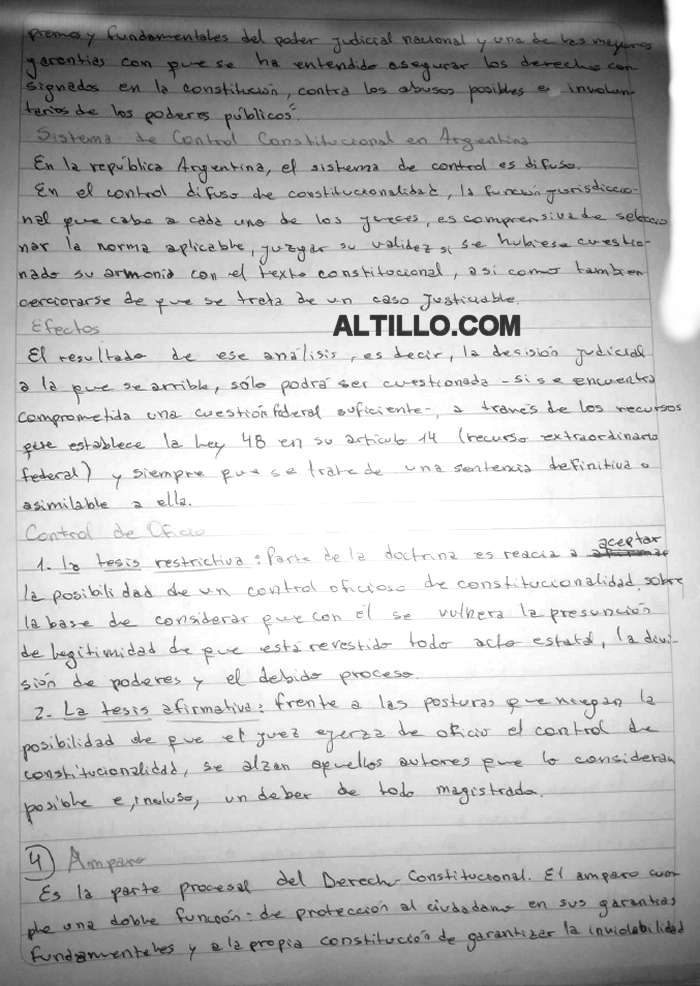 premos y fundamentales del poder judicial nacional y una de las mayores
garantías con que se ha entendido asegurar los derechos con
signados en la constitución, contra los abusos posibles e involun
tarios de los poderes públicos".
Sistema de Control Constitucional en Argentina
En la república Argentina, el sistema de control es difuso.
En el control difuso de constitucionalidad, la función jurisdiccio-
nal que cabe a cada uno de los jueces, es comprensiva de seleccio
nar la norma aplicable, juzgar su validez si se hubiese cuestio-
nado su armonía con el texto constitucional, asi como tambien
cerciorarse de que se trata de un caso justiciable.
Efectos
ALTILLO.COM
El resultado de ese análisis, es decir, la decisión judicial
a la que se arribe, sólo podrá ser cuestionada -si se encuentra
comprometida una cuestión federal suficiente-, a través de los recursos
que establece la ley 48 en su articulo 14 (recurso extraordinario
federal) y siempre que se trate de una sentencia definitiva o
asimilable a ella.
Control de Oficio
1. La tesis restrictiva: Parte de la doctrina es reacia a aceptar
la posibilidad de un control oficioso de constitucionalidad, sobre
la base de considerar que con él se vulnera la presunción
de legitimidad de que está revestido todo acto estatal, la divi-
sión de poderes y el debido proceso.
2. La tesis afirmativa: frente a las posturas que niegan la
posibilidad de que el juez ejerza de oficio el control de
constitucionalidad, se alzan aquellos autores que lo consideran
posible e, incluso, un deber de todo magistrado.
4) Amparo
Es la parte procesal del Derecho Constitucional. El amparo cum
ple una doble función: de protección al ciudadano en sus garantías
fundamentales y a la propia constitución de garantizar la inviolabilidad